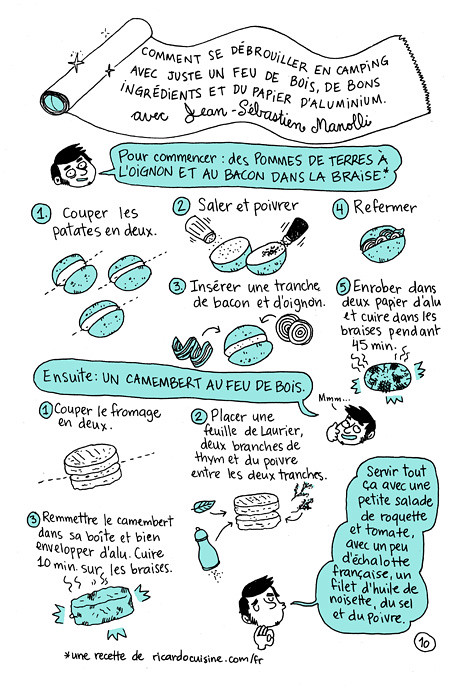 COMMENT SE DÉBROUILLER EN CAMPING
AVEC JUSTE UN FEU DE BOIS, DE BONS
INGRÉDIENTS ET DU PAPIER D'ALUMINIUM.
avec Jean-Sébastien Manolli
Pour commencer : des POMMES DE TERRES À
L'OIGNON ET AU BACON DANS LA BRAISE*
1. Couper les
patates en deux.
2 Saler et poivrer
3 Insérer une tranche
de bacon et d'oignon.
4 Refermer
5 Enrober dans
deux papier d'alu
et cuire dans les
braises pendant
45 min.
Ensuite: UN CAMEMBERT AU FEU DE BOIS.
Mmm...
1 Couper le fromage
en deux.
2 Placer une
feuille de Laurier,
deux branches de
thym et du poivre
entre les deux tranches.
3 Remmettre le camembert
dans sa boîte et bien
envelopper d'alu. Cuire
10 min. sur les braises.
Servir tout
ça avec une
petite salade
de roquette
et tomate,
avec un peu
d'échalotte
française, un
filet d'huile de
noisette, du sel
et du poivre.
10
*une recette de ricardocuisine.com/fr